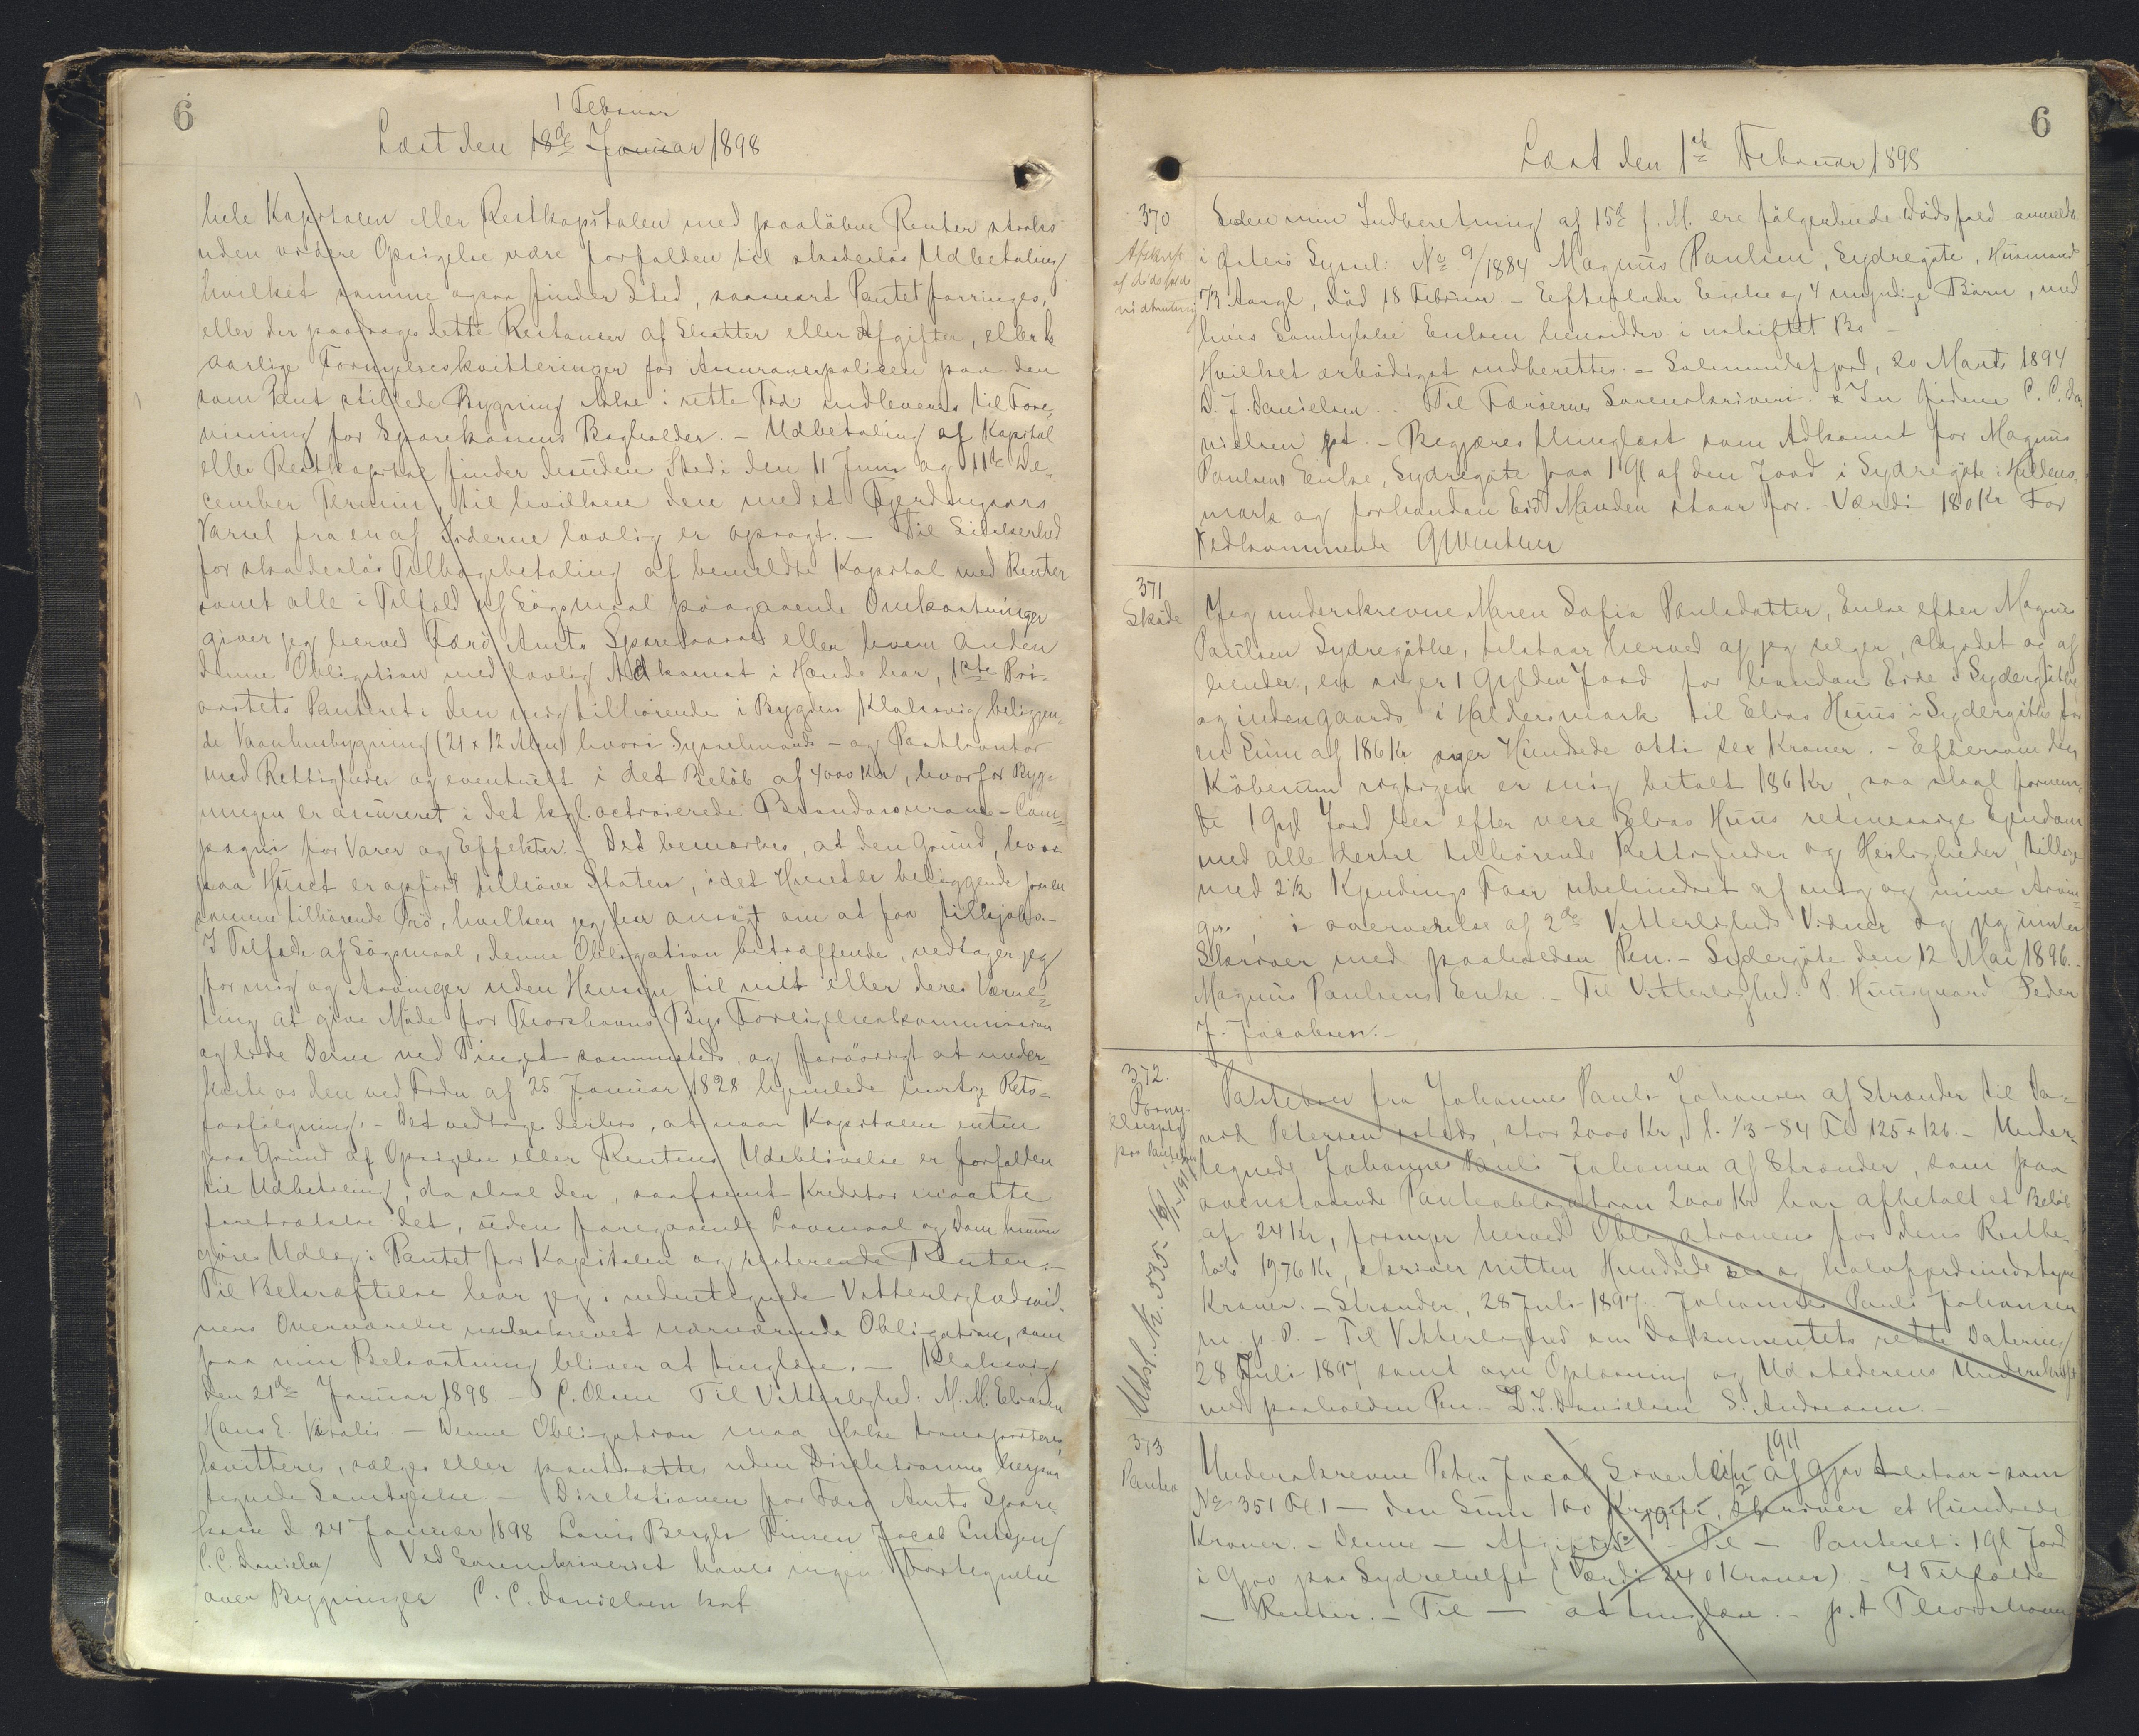 6
1 Februar
Læst den 18de Januar 1898
hele Kapitalen eller Restkapitalen med paaløbne Renter straks
uden videre Opsigelse være forfalden til skadesløs Udbetaling
hvilket samme ogsaa finder Sted, saasnart Pantet forringes,
eller der paadrages dette Restancer af Skatter eller Afgifter, eller de
aarlige Fornyelseskvitteringer for Assurancepolicen paa den
som Pant stillede Bygning ikke i rette Tid indleveres til Fore-
visning for Sparekassens Bogholder. – Udbetaling af Kapital
eller Restkapital finder desuden Sted i den 11 Juni og 11te De-
cember Termin, til hvilken den med et Fjerdingaars
Varsel fra en af Siderne lovlig er opsagt. – Til Sikkerhed
for skadesløs Tilbagebetaling af bemeldte Kapital med Renter
samt alle i Tilfæld af Søgsmaal paagaaende Omkostninger
giver jeg herved Færø Amts Sparekasse eller hvem anden
denne Obligation med lovlig Adkomst i Hænde har, 1ste Pri-
oritets Panteret i den mig tilhørende i Bygden Klaksvig beliggen-
de Vaaningsbygning (21 x 12 Alen) hvori Sysselmands – og Postkontor
med Rettigheder og eventuelt i det Beløb af 4000 Kr, hvorfor Byg-
ningen er assureret i det kgl. octroierede Brandassurance-Com-
pagni for Varer og Effekter. – Det bemærkes, at den Grund, hvor
paa Huset er opført tilhører Staten, idet Huset er beliggende paa en
samme tilhørende Trø, hvilken jeg har ansøgt om at faa tilkjøbs. –
I Tilfælde af Søgsmaal, denne Obligation betræffende, vedtager jeg
for mig og Arvinger uden Hensyn til mit eller deres Værne-
ting at give Møde for Thorshavns Bys Forligelseskommission
og lide Dom ved Tinget sammesteds, og forøvrigt at under-
kaste os den ved Frdn. af 25 Januar 1828 hjemlede hurtige Rets-
forfølgning. – Det vedtages derhos, at naar Kapitalen enten
paa Grund af Opsigelse eller Rentens Udeblivelse er forfalden
til Udbetaling, da skal der, saafremt Kreditor maatte
foretrække det, uden foregaaende Lovmaal og Dom kunne
gøres Udlæg i Pantet for Kapitalen og resterende Renter. –
Til Bekræftelse har jeg i undertegnede Vitterlighedsvid-
ners Overværelse underskrevet nærværende Obligation, som
paa min Bekostning bliver at tinglæse. – Klaksvig
den 21de Januar 1898. – C. Olsen Til Vitterlighed: M. M. Eliasen
Hans E. Vitalis. – Denne Obligation maa ikke transporteres,
kvitteres, sælges eller pantsættes uden Direktionens herpaa
tegnede Samtykke – Direktionen for Færø Amts Spare-
kasse d 24 Januar 1898 Louis Bergh Jacob Lützen
C. C. Danielsen Ved Sorenskriveriet haves ingen Fortegnelse
over Bygninger C. C. Danielsen kst.
6
Læst den 1ste Februar 1898
370
Afskrift
af dødsfald
vidnning
Siden min Indberetning af 15de f. M. ere følgende Dødsfald anmeldt
i Østerø Syssel: No 9/1884 Magnus Paulsen, Sydregøte, Husmand
73 Aargl, død 18 Februar – Efterlader Enke og 4 myndige Børn, med
hvis Samtykke Enken hensidder i uskiftet Bo –
Hvilket ærbødigst indberettes. – Salmundefjord, 20 Marts 1894
D. J. Danielsen. Til Færøernes Sorenskriveri. – In fidem C. C. Da-
nielsen kst. – Begjæres thinglæst som Adkomst for Magnus
Paulsens Enke, Sydregøte paa 1 Gl af den Jord i Sydregøte i Haldens-
mark og forhandan Eid Manden staar for. – Værdi 180 Kr For
Vedkommende GWenthur
371
Skøde
Jeg underskrevne Maren Sofia Paulsdatter, Enke efter Magnus
Paulsen Sydregøthe, tilstaar herved af jeg selger, skyodet og af
hender, en siger 1 Gylden Jord for handan Eide i Sydergøthe
og inden gaards i Haldensmark til Elias Huus i Sydergøthe for
en Sum af 186 Kr siger Hundrede otti sex Kroner. – Eftersom den
Købesum rigtigen er mig betalt 186 Kr, saa skal fornem-
te 1 Gyl Jord her efter vere Elias Huus retmessige Ejendom
med alle dertil tilhørende Rettigheder og Herligheder, tillige
med 2½ Kjendings Faar ubehindret af mig og mine Arvin-
ger, i oververelse af 2de Vitterligheds Vidner og jeg under
Skriver med paaholden Pen. – Sydergøte den 12 Mai 1896. –
Magnus Paulsens Enke. – Til Vitterlighed: P. Huusgaard Peder
J. Jacobsen. –
372.
Forny-
elsespaateg
paa Pantebrev
Udsl. Nr. 535 – 16/1-1917
Pantebrev fra Johannes Pauli Johansen af Strænder til Da-
vid Petersen isteds, stor 2000 Kr, l. 1/3 – 84 Fl 125 x 126. – Under-
tegnede Johannes Pauli Johansen af Strænder, som paa
ovenstaaende Panteobligation 2000 Kr har afbetalt et Beløb
af 24 Kr, fornyer herved Obligationen for dens Restbe-
løb 1976 Kr, skriver nitten Hundrede sex og halvfjerdsindstyve
Kroner. – Strænder, 28 Juli 1897 Johannes Pauli Johansen
m. p. P. – Til Vitterlighed om Dokumentets rette Datering
28 Juli 1897 samt om Oplæsning og Udstederens Underskrift
med paaholden Pen. – D. J. Danielsen S. Andreasen. –
373
Panteo
Underskrevne Peter Jacob af Gjov tilstaar – som
No 351 Fl. 1 – den Sum 100 Kroner, skriver et Hundrede
Kroner. – Denne – Afgifter – Til – Panteret i 1 Gl Jord
i Gjov paa Sydrehelft (Værdi 240 Kroner) – I Tilfælde
– Renter. – Til – at tinglæse. – p. t Thorshavn
1911